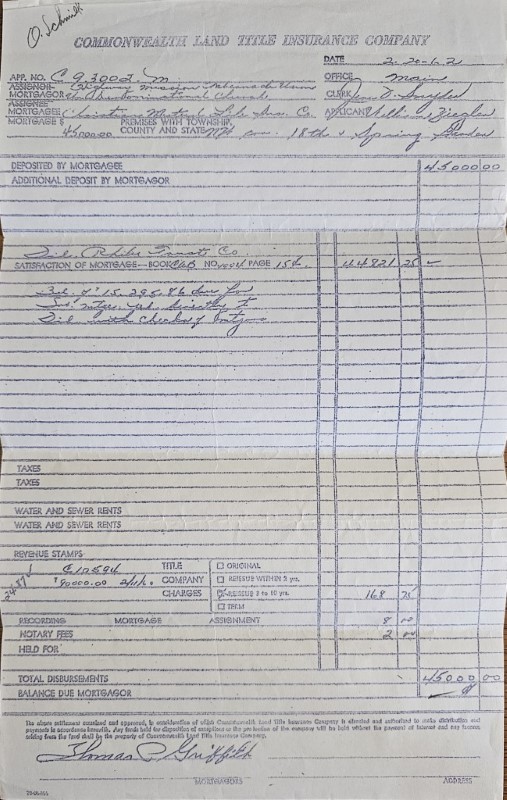 O. Schmidt
COMMONWEALTH LAND TITLE INSURANCE COMPANY
DATE 2-20-62
APP. NO. C 93002 m OFFICE main
ASSIGNOR
MORTGAGOR Undenominational Church CLERK D. Snyder
ASSIGNEE
MORTGAGEE Mutual Life Ins. Co. APPLICANT Ziegler
MORTGAGE $ 45000.00 PREMISES WITH TOWNSHIP, COUNTY AND STATE cor. 18th & Spring Garden
DEPOSITED BY MORTGAGEE 45000 00
ADDITIONAL DEPOSIT BY MORTGAGOR
Phila Trust Co
SATISFACTION OF MORTGAGE—BOOK NO. PAGE 44821 25
Bal. of 15,295.86 due for
directly to
with check of
TAXES
TAXES
WATER AND SEWER RENTS
WATER AND SEWER RENTS
REVENUE STAMPS
TITLE ☐ ORIGINAL
$ 90000.00 COMPANY ☐ REISSUE WITHIN 3 yrs.
CHARGES REISSUE 3 to 10 yrs. 168 75
☐ TERM
RECORDING MORTGAGE ASSIGNMENT 8 00
NOTARY FEES 2 00
HELD FOR
TOTAL DISBURSEMENTS 45000 00
BALANCE DUE MORTGAGOR
The above settlement examined and approved, in consideration of which Commonwealth Land Title Insurance Company is directed and authorized to make distribution and
payments in accordance herewith. Any funds held for disposition of exceptions or the protection of the company will be held without the payment of interest and any interest
arising from the fund shall be the property of Commonwealth Land Title Insurance Company.
Thomas P Griffith
MORTGAGORS ADDRESS